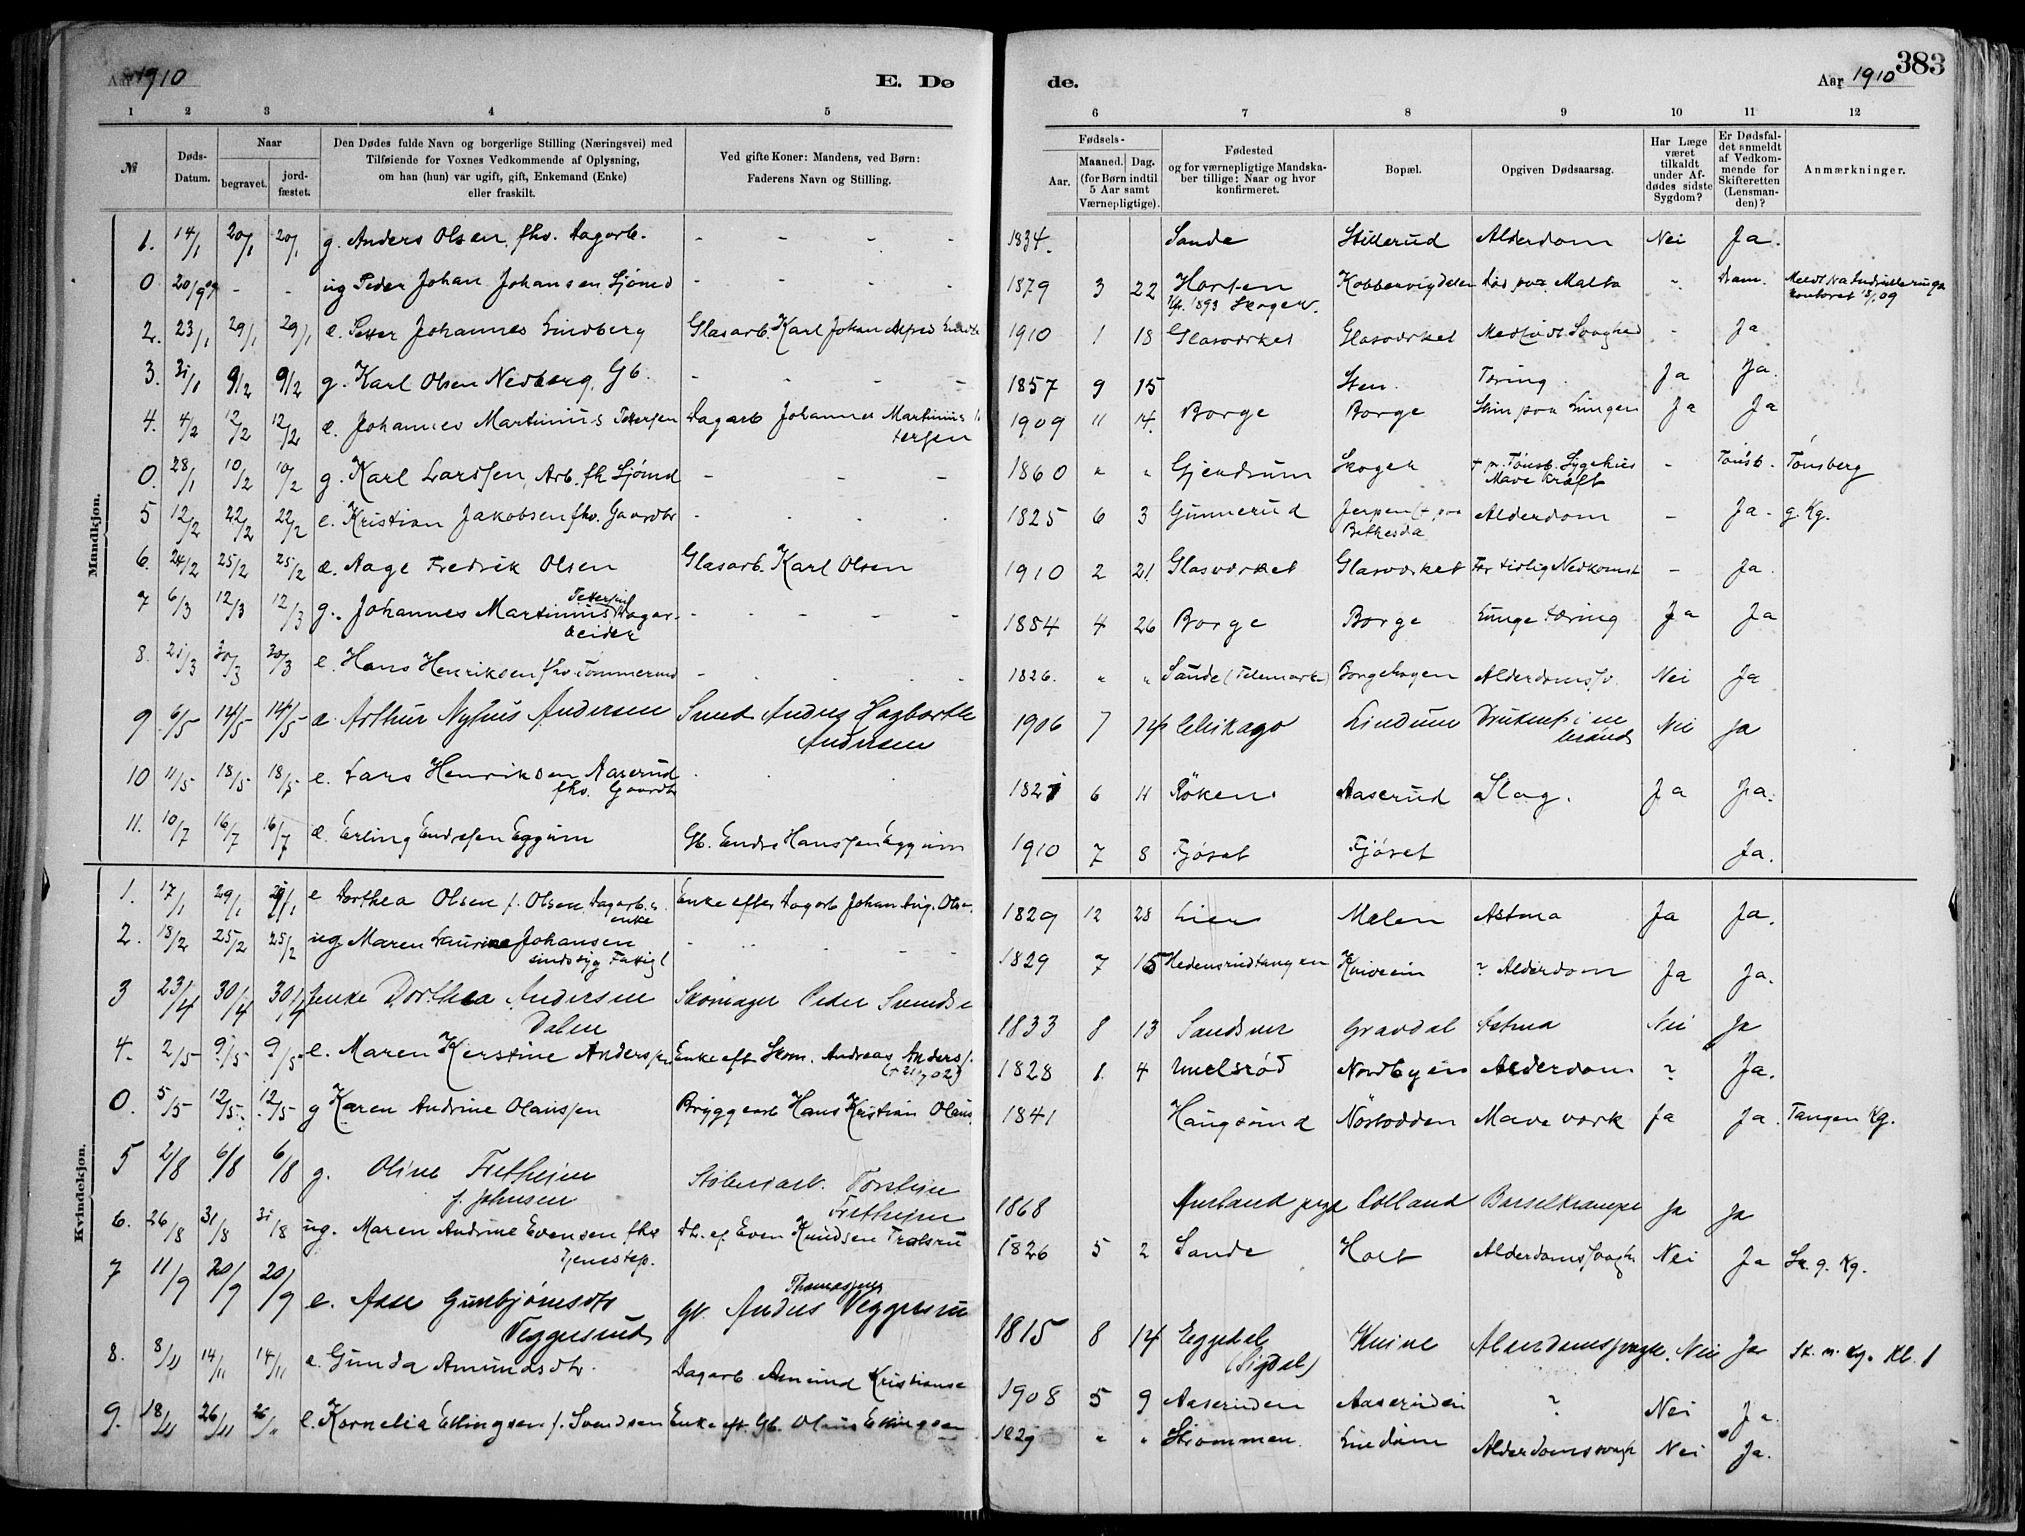 Aar 1910
E. Dø
de.
Aar 1910
383
1 2 3 4 5 6 7 8 9 10 11 12
№
Døds-
Datum.
Naar
begravet.
jord-
fæstet.
Den Dødes fulde Navn og borgerlige Stilling (Næringsvei) med
Tilføiende for Voxnes Vedkommende af Oplysning,
om han (hun) var ugift, gift, Enkemand (Enke)
eller fraskilt.
Ved gifte Koner: Mandens, ved Børn:
Faderens Navn og Stilling.
Fødsels-
Aar.
Maaned. Dag.
(for Børn indtil
5 Aar samt
Værnepligtige).
Fødested
og for værnepligtige Mandska-
ber tillige: Naar og hvor
konfirmeret.
Bopæl.
Opgiven Dødsaarsag.
Har Læge
været
tilkaldt
under Af-
dødes sidste
Sygdom?
Er Dødsfal-
det anmeldt
af Vedkom-
mende for
Skifteretten
(Lensman-
den)?
Anmærkninger.
Mandkjøn.
1. 14/1 20/1 20/1 g. Anders Olsen, fhv. Dagarb. - - - - 1834. Sande Stillerud Alderdom Nei Ja.
0 20/9 09 - - ug Peder Johan Johansen Sjømd - - - - 1879 3 22 Horten Kobbervigdelen død paa Malta - Dram.
Kf. 1893 Skoger
2. 23/1 29/1 29/1 æ. Petter Johannes Lindberg Glasarb. Karl Johan Alfred 1910 1 18 Glasværket Glasværket Medfødt Svaghed - Ja
3. 31/1 9/2 9/2 g. Karl Olsen Nedberg, Gb. - - - - 1857 9 15 Sten. Tæring. Ja Ja.
4. 4/2 12/2 12/2 æ. Johannes Martinius Pettersen Dagarb Johannes Martinius
tersen 1909 11 14. Borge Borge Slim paa Lungen Ja Ja
0. 28/1 10/2 10/2 g. Karl Larssen, Arb. fh Sjømd - - - 1860 " " Gjendrum Skoger + p. Tønsb. Sygehus - Tønsb. Tønsberg
Mave kræft
5 12/2 22/2 22/2 e. Kristian Jakobsen fhv. Gaardbr - - - - 1825 6 3 Gunnerud Jerpen (+ paa Alderdom - Ja. g. Kg.
Bethesda
6. 24/2 25/2 25/2 æ. Aage Fredrik Olsen Glasarb. Karl Olsen 1910 2 21. Glasværket Glasværket For tidlig Nedkomst - Ja.
7 6/3 12/3 12/3 g. Johannes Martinius Pettersen Dagar-
beider - - - - 1854 4 26 Borge Borge Lunge tæring Ja Ja
8. 21/3 30/3 30/3 e. Hans Henriksen fhv. Tømmermd - - - - 1826. " " Sande (Telemarken) Borgehagen Alderdomssv. Nei Ja
9 6/5 14/5 14/5 æ Arthur Nyhus Andersen Smed Andreas Hagbarth
Andersen 1906 7 14 Chikago Lindum Druknet i en
brønd Nei Ja
10 11/5 18/5 18/5 e. Lars Henriksen Aaserud
fhv. Gaardbr 1821 6 11 Røken Aaserud Slag. Ja Ja.
11. 10/7 16/7 16/7 æ. Erling Endresen Eggum Gb. Endre Hanssen Eggum 1910 7 8 Fjøset Fjøset Ja.
Kvindekjøn.
1. 17/1 29/1 29/1 e Dorthea Olsen f. Olsen, Dagarb.s
enke Enke efter Dagarb Johan Aug. Olse 1829 12 28 Lier Melen Astma Ja Ja.
2. 18/2 25/2 25/2 ug Maren Laurine Johansen
sindssyg Fattigl - - - - 1829 7 15 Hedensrudtangen Knive ein ? Alderdom Ja Ja.
3 23/4 30/4 30/4 enke Dorthea Andersen
Dalen Skomager Peder Svends 1833 8 13 Sandsver Gravdal Astma Nei Ja
4. 2/5 9/5 9/5 e. Maren Kirstine Anderssen Enke eft Skom. Andreas Anders.
1828 1. 4 Nordbyen Alderdom ? Ja.
0. 5/5 12/5 12/5 g Karen Andrine Olaussen Bryggearb Hans Kristian Olaus 1841 Haugsund Nøstodden Mave værk Ja Ja. Tangen Kg.
5 2/8 6/8 6/8 g. Oline Fretheim
f. Johnsen Støberiarb. Torstein
Fretheim 1868 Aurland Lolland Barselkrampe Ja Ja
6. 26/8 31/8 31/8 ug. Maren Andrine Evensen fhv
Tjenestep. Dtr. af Even Knudsen 1826 5 2 Sande Holt Alderdomssvagh Nei Ja Sk. g. Kg.
7 11/9 20/9 20/9 e. Aase Gunbjørnsdtr
Veggersrud Gb. Anders Thomassen Veggersru 1815 8 14 Eggedal
(Sigdal) Knive Alderdomssvagh. Nei Ja Sk. n. Kg. Kl. 1
8. 8/11 14/11 14/11 e. Gunda Amundsdtr. Dagarb. Amund Kristianse 1908 5 9 Aaserinden Aaserinden ? Nei Ja.
9. 18/11 26/11 26/11 e. Kornelia Ellingsen f. Svendsen Enke eft. Gb. Olaus Ellingsen 1829 " " Strømmen. Lindum Alderdomssvagh Nei Ja.